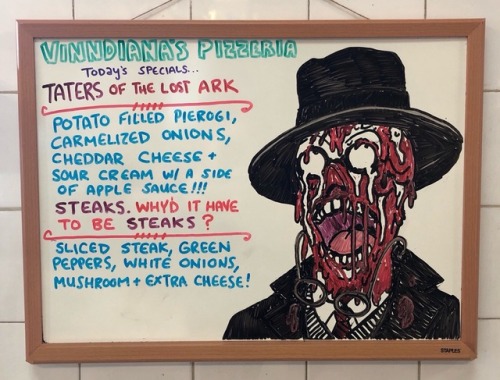 VINNDIANA'S PIZZERIA
TODAY'S SPECIALS...
TATERS OF THE LOST ARK
POTATO FILLED PIEROGI,
CARMELIZED ONIONS,
CHEDDAR CHEESE +
SOUR CREAM W/ A SIDE
OF APPLE SAUCE!!!
STEAKS. WHY'D IT HAVE
TO BE STEAKS?
SLICED STEAK, GREEN
PEPPERS, WHITE ONIONS,
MUSHROOM + EXTRA CHEESE!
STAPLES